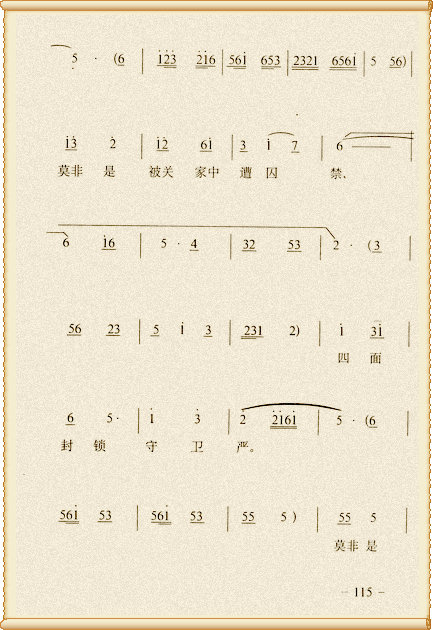 5 · (6 | i̇2̇3̇ 2̇i̇6 | 56i̇ 653 | 2321 656i̇ | 5 56) |
i̇3̇ 2̇ | i̇2̇ 6i̇ | 3 i̇ 7 | 6 —
莫非 是 被关 家中 遭 囚 禁、
6 i̇6 | 5 · 4 | 32 53 | 2 · (3 |
56 23 | 5 i̇ 3 | 231 2) | i̇ 3i̇ |
四 面
6 5· | i̇ 3̇ | 2̇ 2̇i̇6i̇ | 5 · (6 |
封 锁 守 卫 严。
56i̇ 53 | 56i̇ 53 | 55 5 ) | 55 5 |
莫非 是
– 115 –